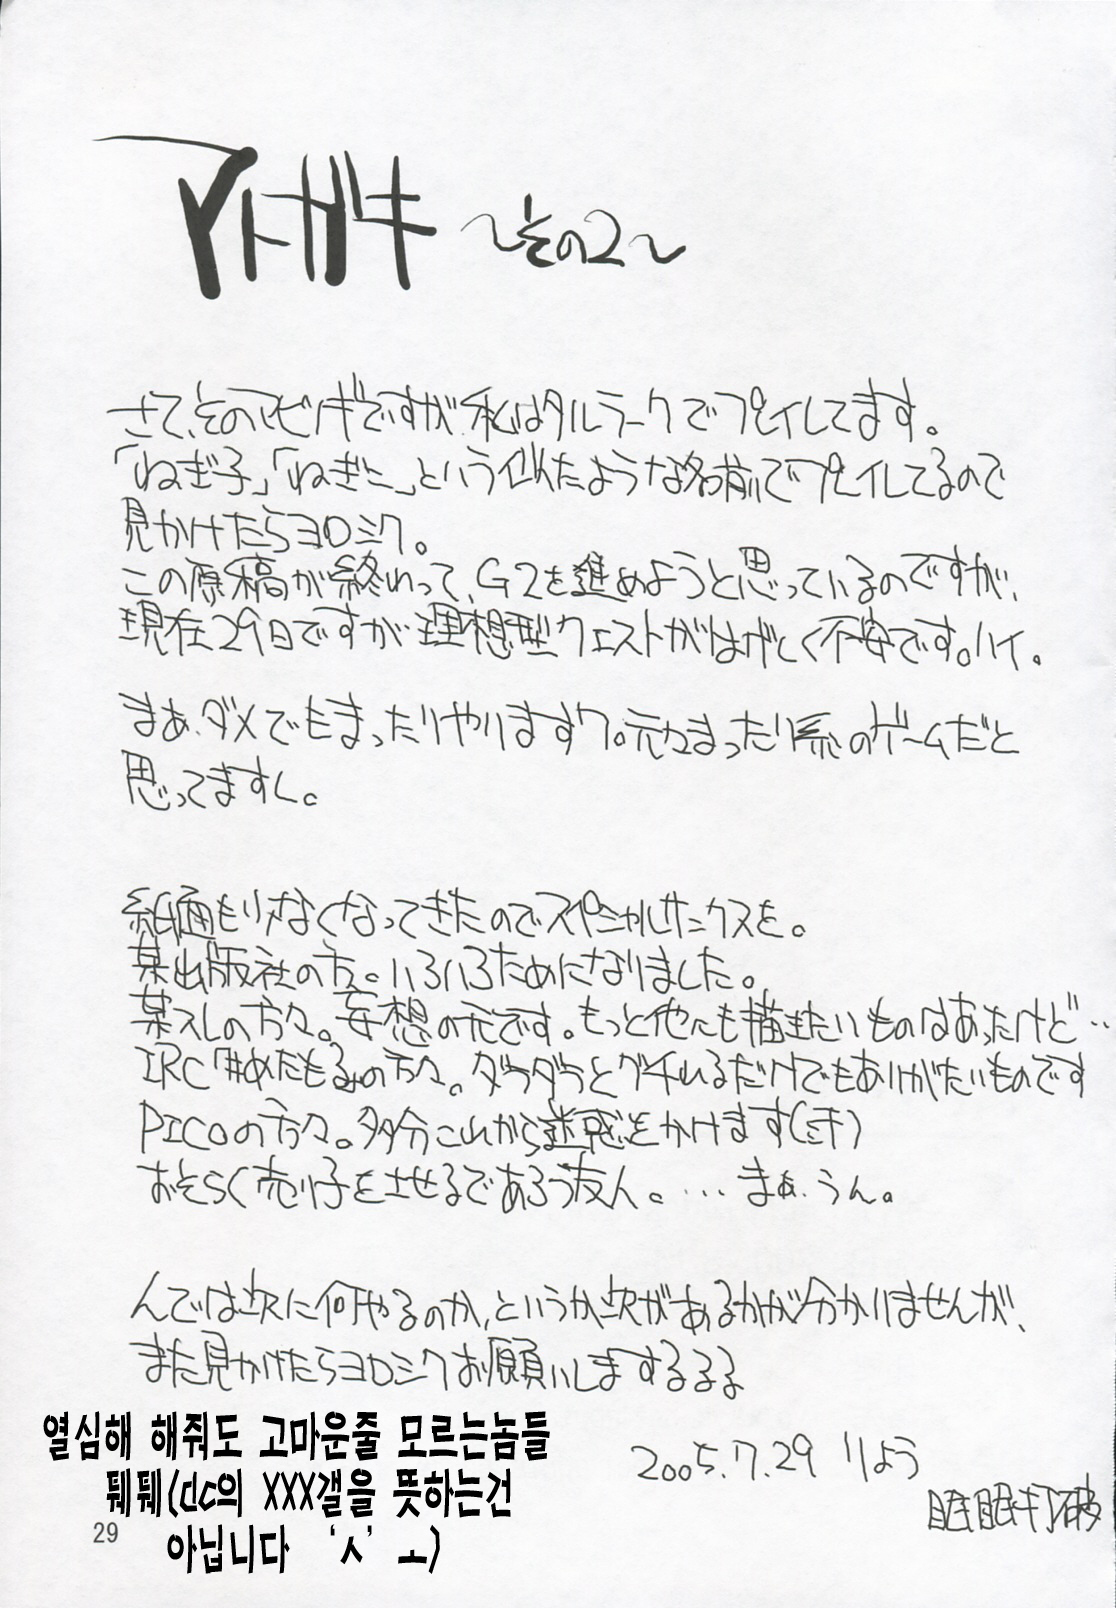 アトガキ ～その2～
さて、そのマビノギですが、私はタルラークでプレイしてます。
「ねぎ子」「ねぎこ」という似たような名前でプレイしてるので
見かけたらヨロシク。
この原稿が終わって、G2を進めようと思っているのですが、
現在29日ですが理想型クエストがはげしく不安です。ハイ。
まあ、ダメでもまったりやりますワ。元々まったり系のゲームだと
思ってますし。
紙面も少なくなってきたのでスペシャルサンクスを。
某出版社の方。いろいろためになりました。
某スレの方々。妄想の元です。もっと他にも描きたいものはあったけど…
IRC「#めたもるみの方々。ダラダラとグチれるだけでもありがたいものです
PICOの方々。多分これから迷惑をかけます(汗)
おそらく売り子をさせるであろう友人。…まぁ、うん。
んでは次に何やるのか、というか次があるかが分かりませんが、
また見かけたらヨロシクお願いしまするるる
2005.7.29 りょう
眠眠打破
열심해 해줘도 고마운줄 모르는놈들
퉤퉤(dc의 XXX갤을 뜻하는건
아닙니다 ‘ㅅ’ ㅗ)
29